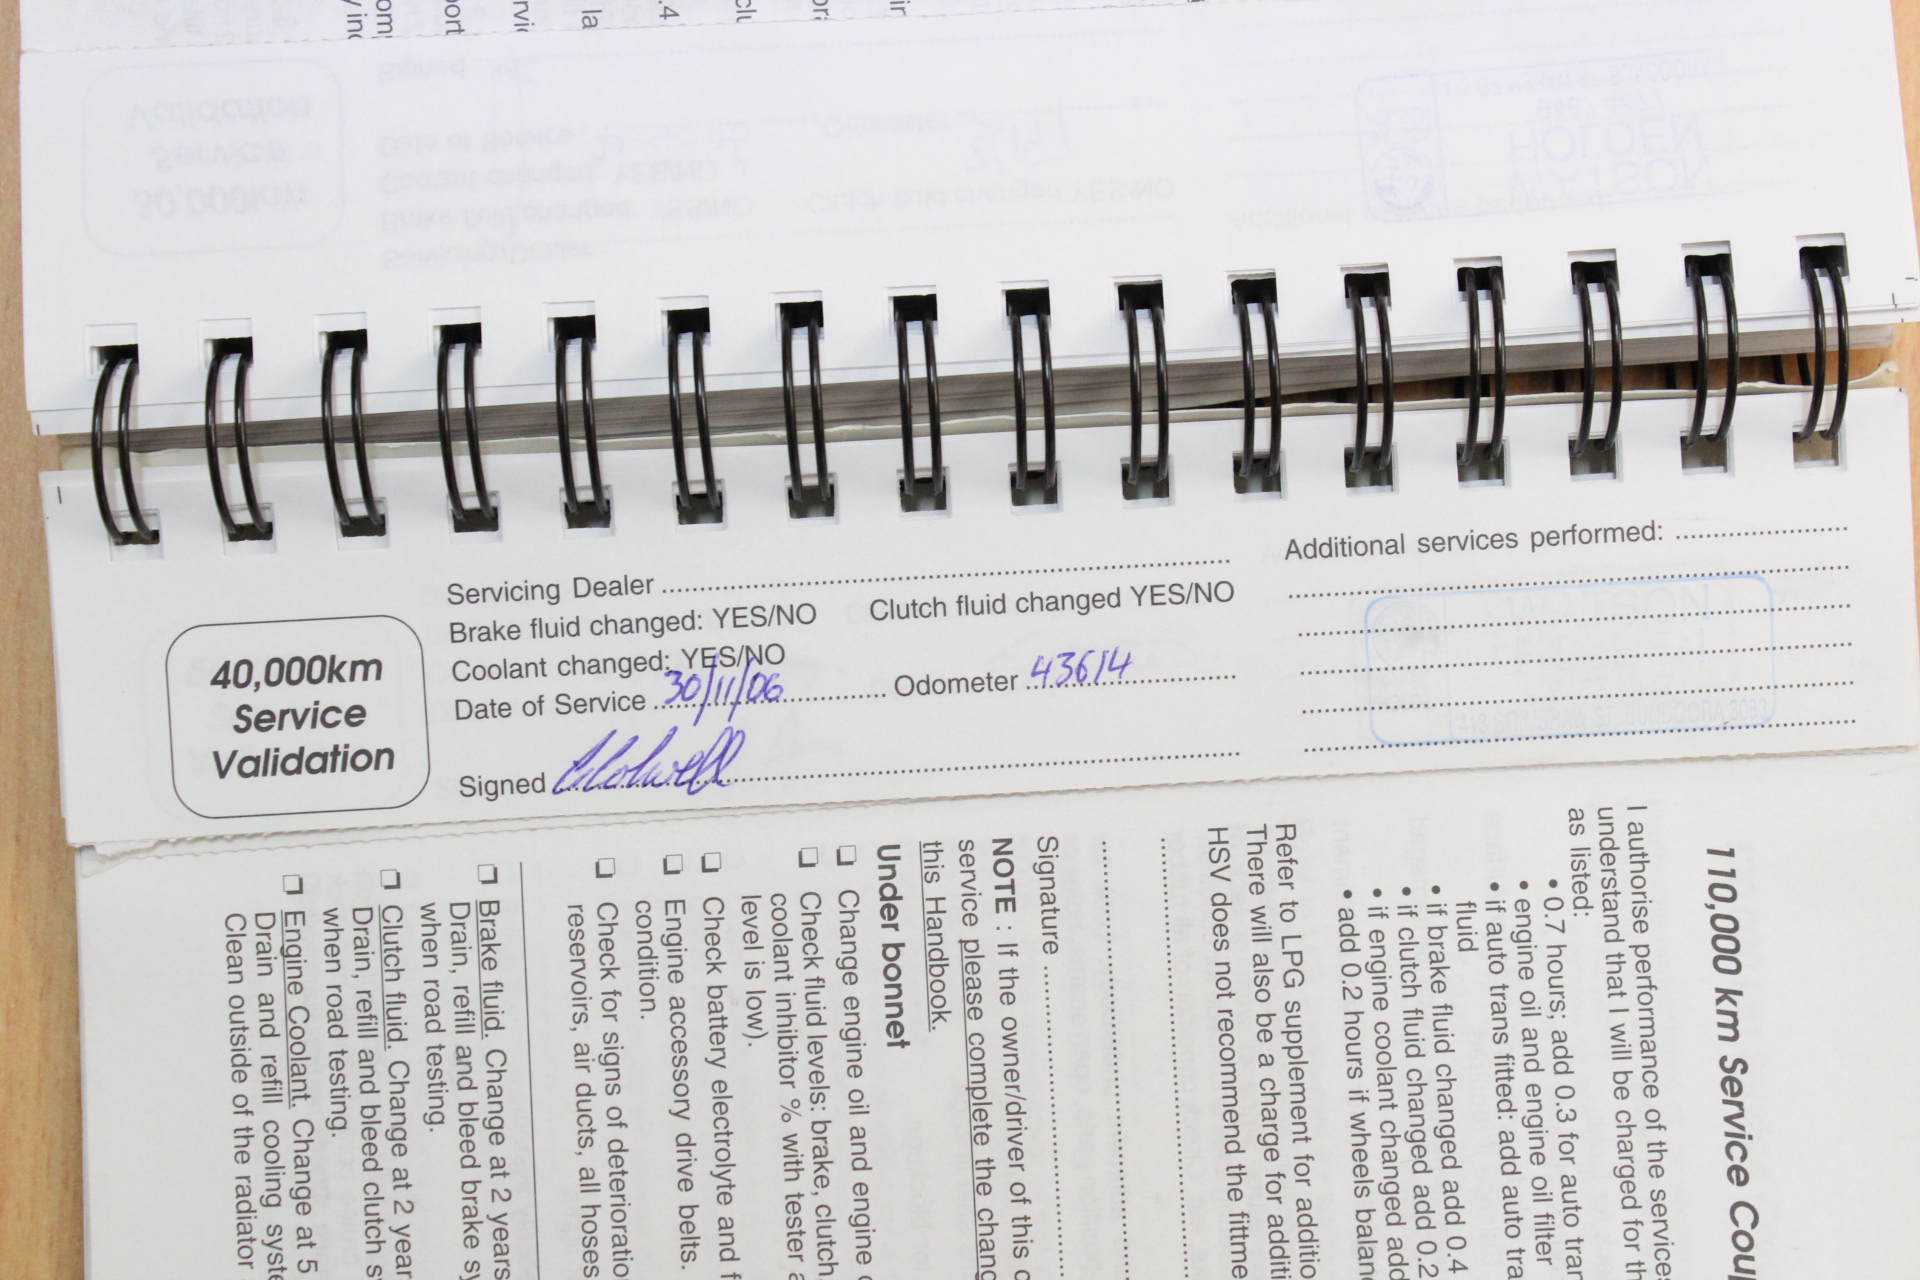 Servicing Dealer
Brake fluid changed: YES/NO Clutch fluid changed YES/NO
Coolant changed: YES/NO
Date of Service 30/11/06 Odometer 43614
Signed
40,000km
Service
Validation
Additional services performed:
WATSON
110,000 km Service Cou
I authorise performance of the services
understand that I will be charged for th
as listed:
• 0.7 hours; add 0.3 for auto tran
• engine oil and engine oil filter
• if auto trans fitted: add auto tra
fluid
• if brake fluid changed add 0.4
• if clutch fluid changed add 0.2
• if engine coolant changed add
• add 0.2 hours if wheels balanc
Refer to LPG supplement for additio
There will also be a charge for additi
HSV does not recommend the fitme
Signature
NOTE : If the owner/driver of this c
service please complete the chang
this Handbook.
Under bonnet
❏ Change engine oil and engine
❏ Check fluid levels: brake, clutch,
coolant inhibitor % with tester a
level is low).
❏ Check battery electrolyte and f
❏ Engine accessory drive belts.
condition.
❏ Check for signs of deterioratio
reservoirs, air ducts, all hoses
❏ Brake fluid. Change at 2 years
Drain, refill and bleed brake sy
when road testing.
❏ Clutch fluid. Change at 2 year
Drain, refill and bleed clutch s
when road testing.
❏ Engine Coolant. Change at 5
Drain and refill cooling syste
Clean outside of the radiator